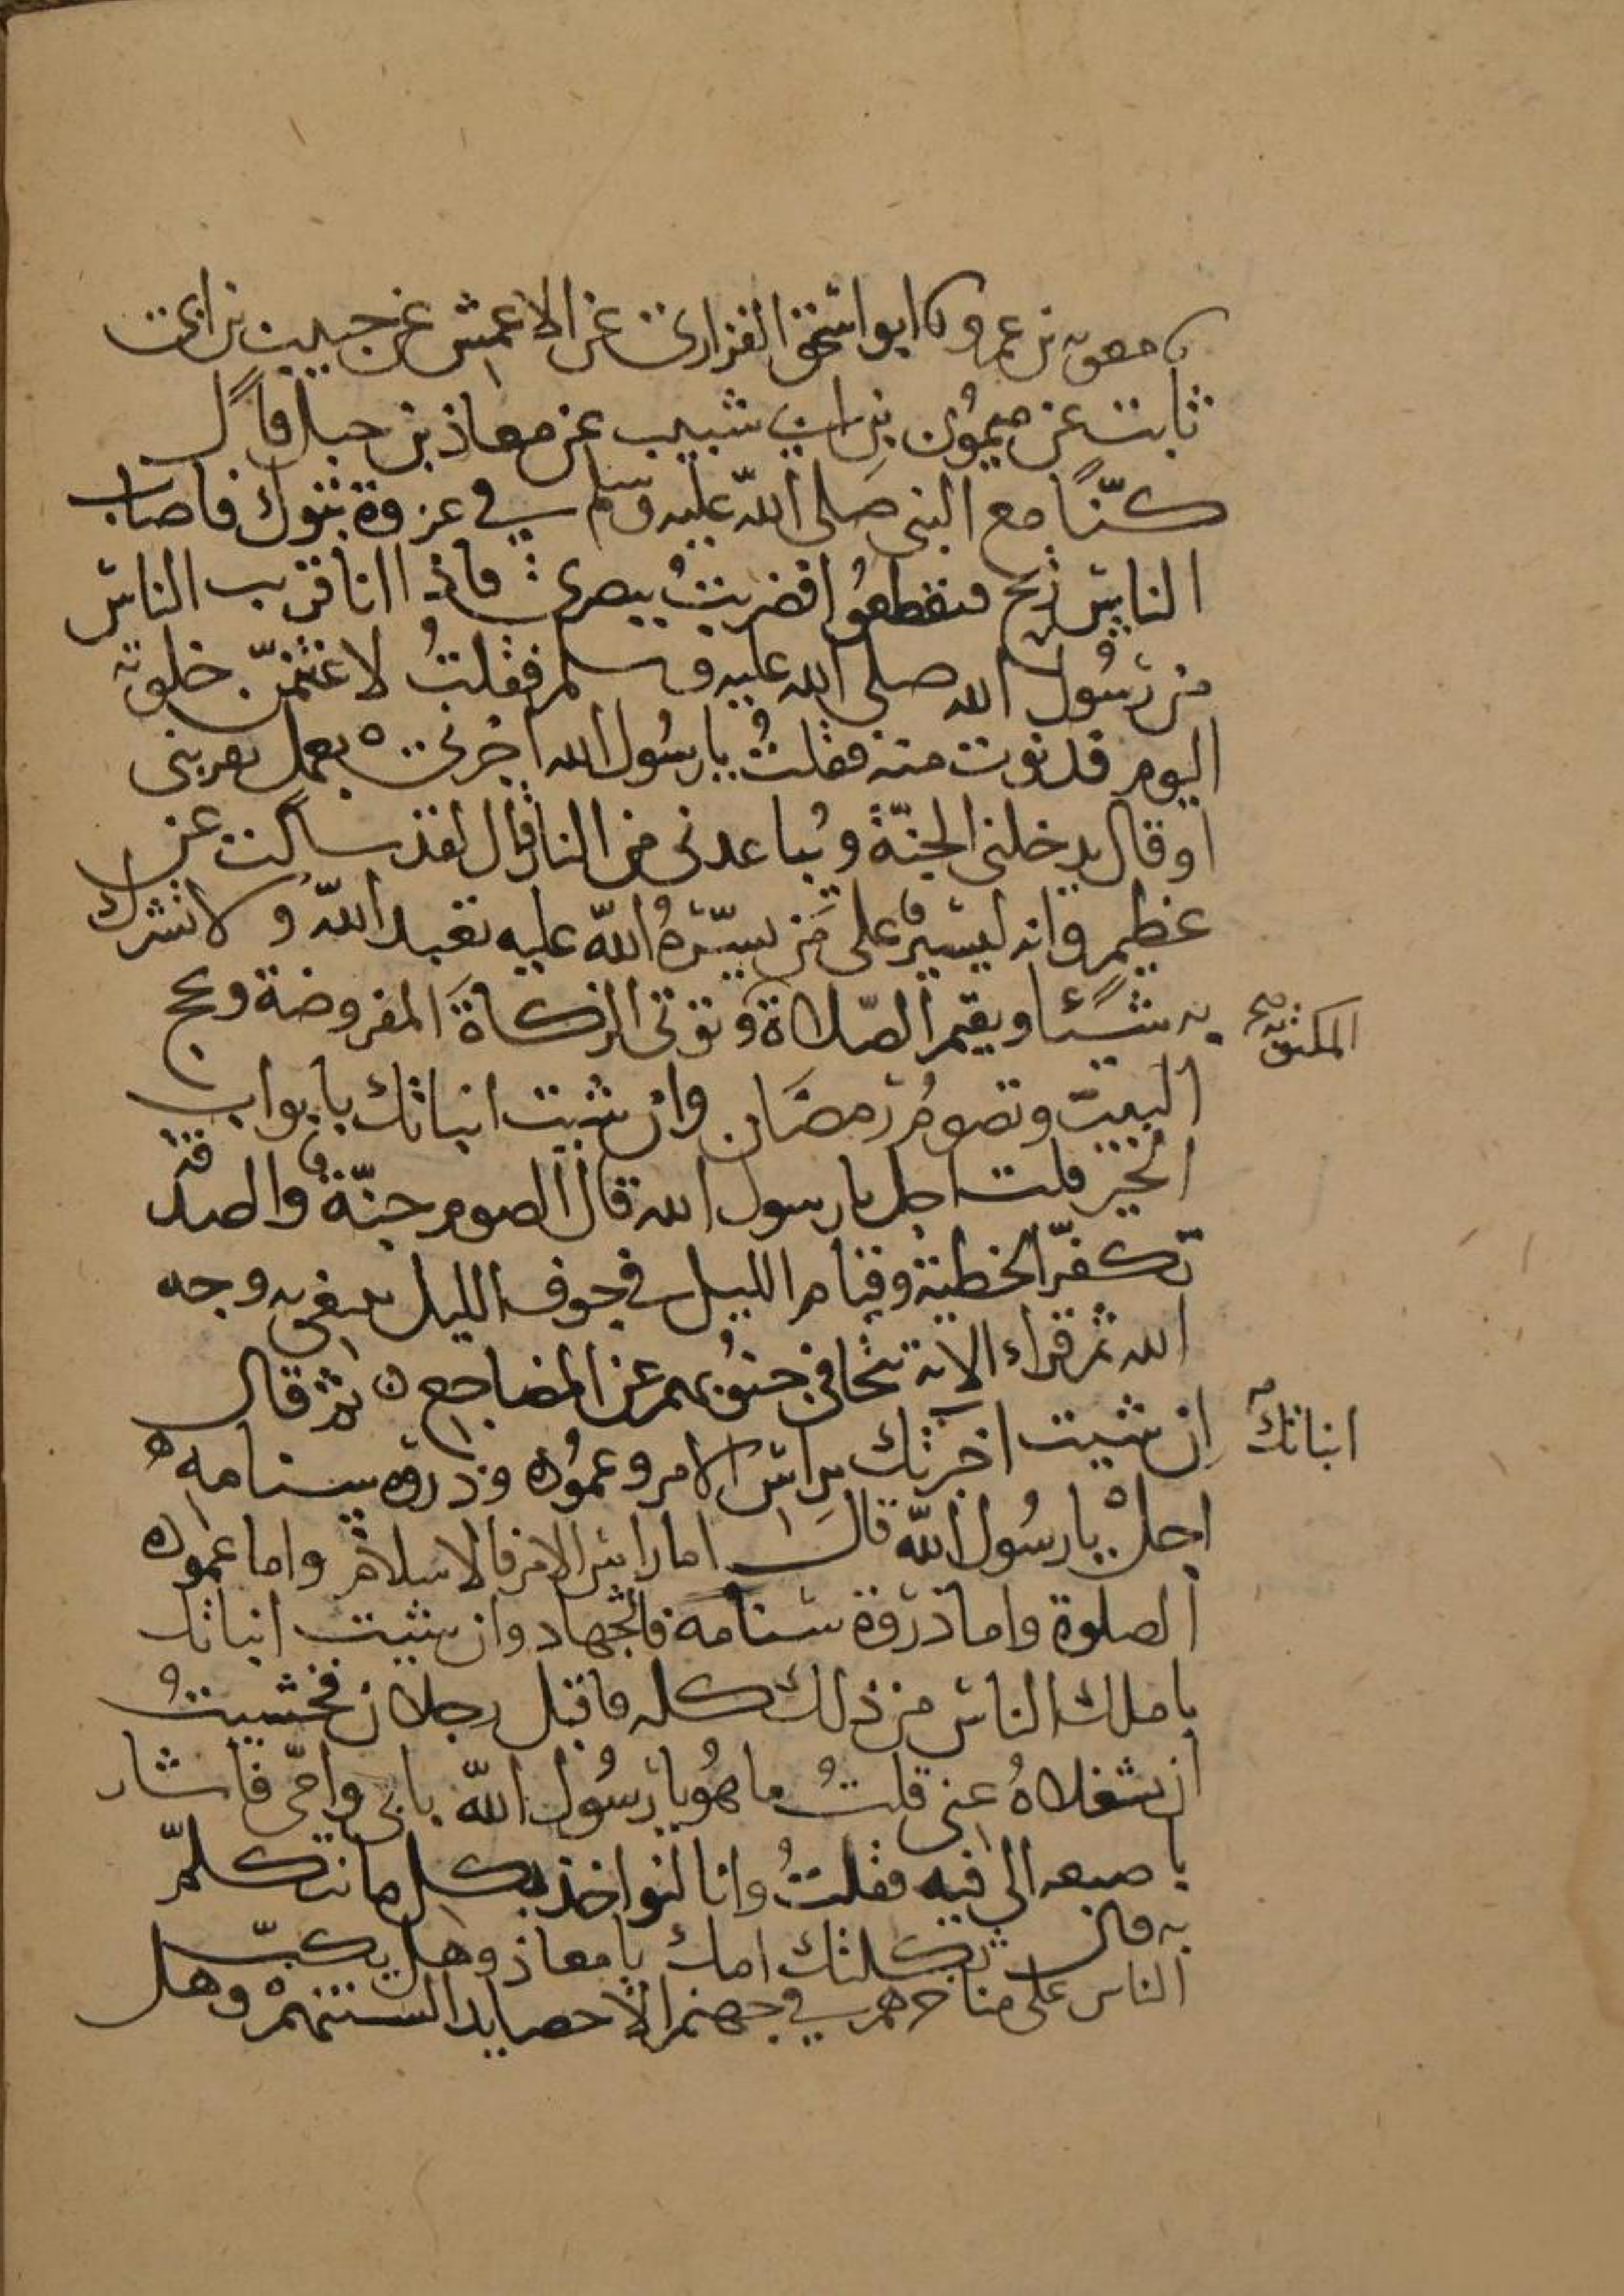 نا معوية بن عمرو نا ابو اسحق الفزاري عن الاعمش عن حبيب بن ابي
ثابت عن ميمون بن ابي شبيب عن معاذ بن جبل قال
كنّا مع النبي صلى اللّه عليه وسلم في غزوة تبوك فاصاب
الناس ريح فتقطعوا فضربتُ ببصري فاذا انا قريب الناس
من رسُول الله صلى الله عليه وسلم فقلتُ لاغتنمنّ خلوته
اليوم فدنوت منه فقلتُ يا رسُول الله اخبرني بعمل يقربني
او قال يدخلني الجنّة ويُباعدني من النار قال لقد سالت عن
عظيم وانه ليسير على مَن يسّرهُ اللّه عليه تعبد اللّه ولا تشرك
به شيئا ويقيم الصّلاة وتؤتي الزكاة المفروضة وتحج
المكتوبة صح
البيت وتصومُ رمضَان وان شيت انباتك بابواب
الخير قلت اجل يا رسول الله قال الصوم جنّة والصدقة
تكفّر الخطية وقيام الليل في جوف الليل يبتغي به وجه
الله ثم قراء الاية تتجافى جنوبهم عن المضاجع ثم قال
اِن شيت اخبرتك براس الامر وعمُوده وذروة سنامه
انباتك
اجلْ يا رسُول اللّه قالَ اما راس الامر فالاسلام واما عموده
الصلوة واما ذروة سنامه فالجهاد وان شيت انباتك
باملك الناس من ذلك كله فاقبل رجلان فخشيتُ
ان يشغلاهُ عني قلتُ ما هُو يا رسُول اللّه بابي وامّي فاشار
باصبعه الى فيه فقلتُ وانا لنواخذ بكل ما نتكلّم
به قال ثكلتك امك يا معاذ وهل يكبّ
الناس على مناخرهم في جهنم الا حصايد السنتهمْ وهل